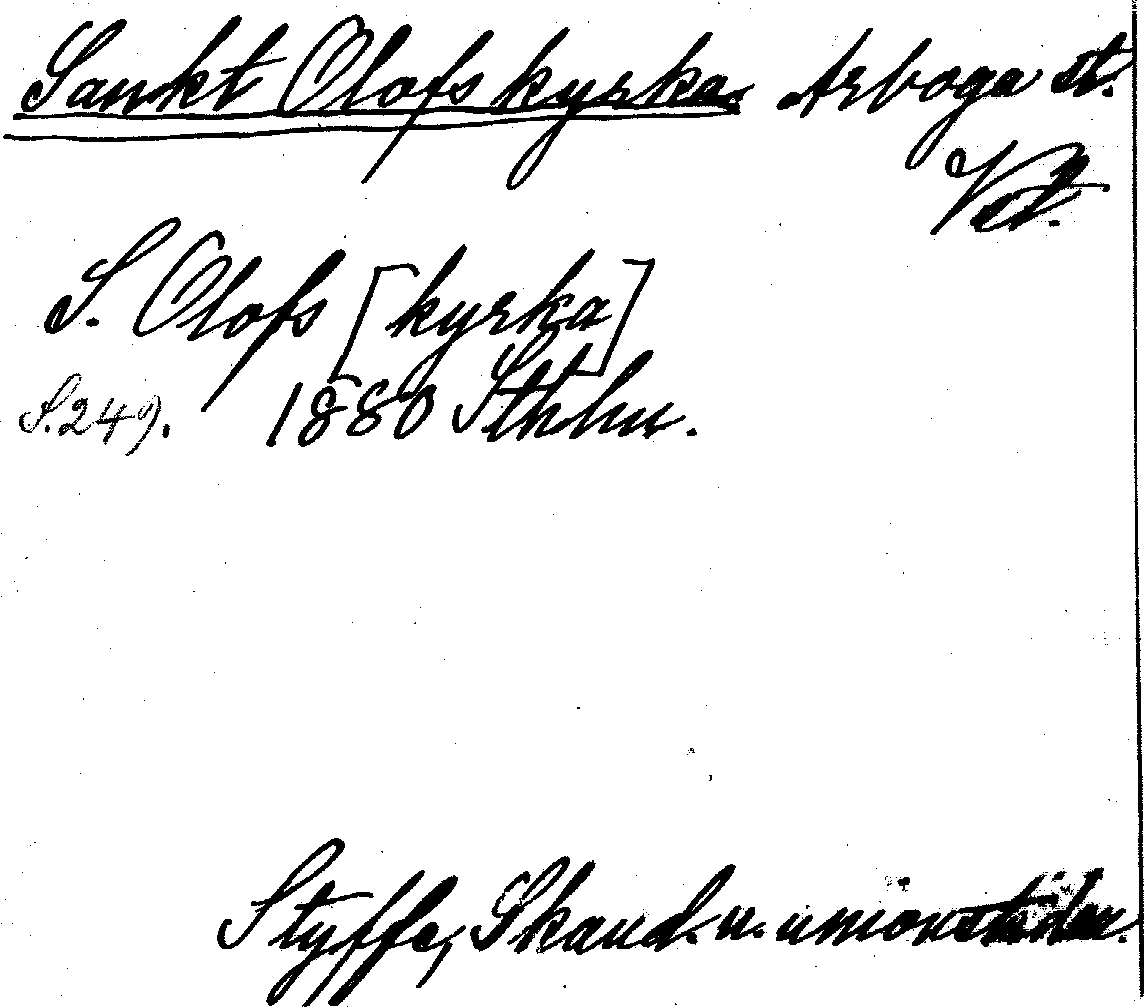 Sankt Olofs kyrka. Arboga st.
Vstm.
S. Olofs [kyrka]
S. 249. 1880 Sthlm.
Styffe, Skand. u. unionstiden.